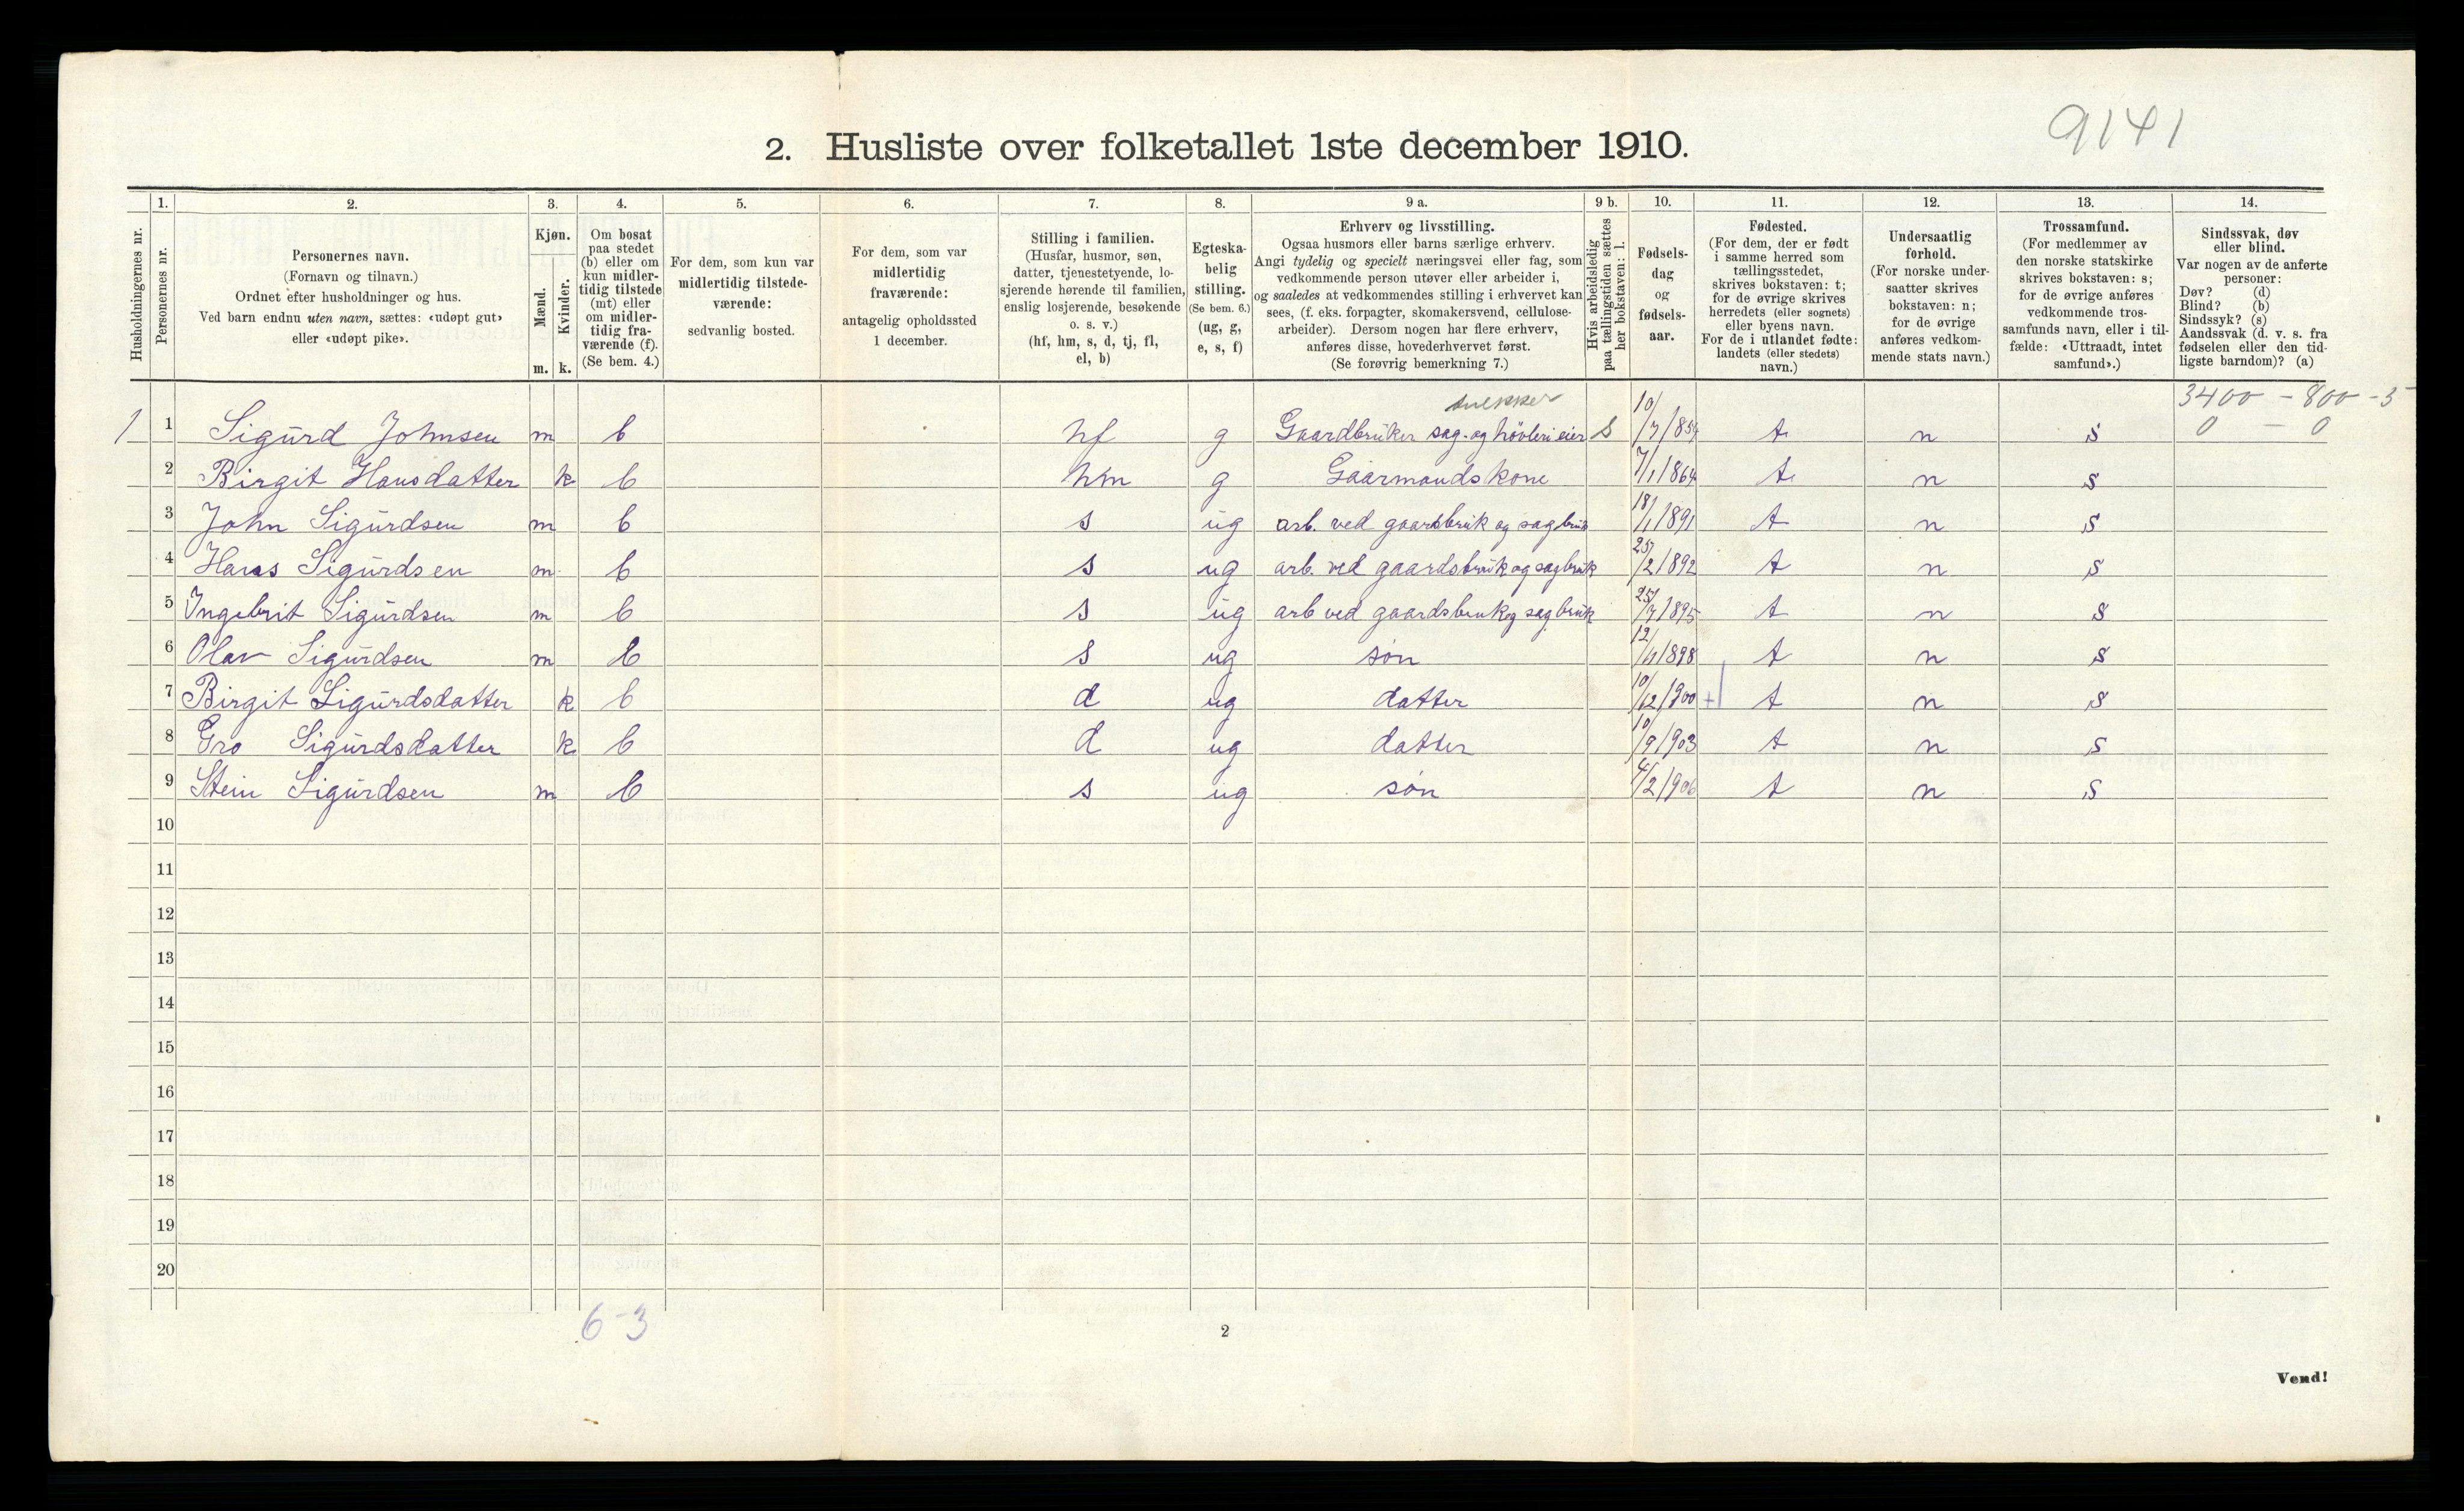 9141
2. Husliste over folketallet 1ste december 1910.
1. 2. 3. 4. 5. 6. 7. 8. 9 a. 9 b. 10. 11. 12. 13. 14.
Husholdningernes nr.
Personernes nr.
Personernes navn.
(Fornavn og tilnavn.)
Ordnet efter husholdninger og hus.
Ved barn endnu uten navn, sættes: «udøpt gut»
eller «udøpt pike».
Kjøn.
Mænd.
Kvinder.
m. k.
Om bosat
paa stedet
(b) eller om
kun midler-
tidig tilstede
(mt) eller
om midler-
tidig fra-
værende (f).
(Se bem. 4.)
For dem, som kun var
midlertidig tilstede-
værende:
sedvanlig bosted.
For dem, som var
midlertidig
fraværende:
antagelig opholdssted
1 december.
Stilling i familien.
(Husfar, husmor, søn,
datter, tjenestetyende, lo-
sjerende hørende til familien,
enslig losjerende, besøkende
o. s. v.)
(hf, hm, s, d, tj, fl,
el, b)
Egteska-
belig
stilling.
(Se bem. 6.)
(ug, g,
e, s, f)
Erhverv og livsstilling.
Ogsaa husmors eller barns særlige erhverv.
Angi tydelig og specielt næringsvei eller fag, som
vedkommende person utøver eller arbeider i,
og saaledes at vedkommendes stilling i erhvervet kan
sees, (f. eks. forpagter, skomakersvend, cellulose-
arbeider). Dersom nogen har flere erhverv,
anføres disse, hovederhvervet først.
(Se forøvrig bemerkning 7.)
Hvis arbeidsledig
paa tællingstiden sættes
her bokstaven: l.
Fødsels-
dag
og
fødsels-
aar.
Fødested.
(For dem, der er født
i samme herred som
tællingsstedet,
skrives bokstaven: t;
for de øvrige skrives
herredets (eller sognets)
eller byens navn.
For de i utlandet fødte:
landets (eller stedets)
navn.)
Undersaatlig
forhold.
(For norske under-
saatter skrives
bokstaven: n;
for de øvrige
anføres vedkom-
mende stats navn.)
Trossamfund.
(For medlemmer av
den norske statskirke
skrives bokstaven: s;
for de øvrige anføres
vedkommende tros-
samfunds navn, eller i til-
fælde: «Uttraadt, intet
samfund».)
Sindssvak, døv
eller blind.
Var nogen av de anførte
personer:
Døv? (d)
Blind? (b)
Sindssyk? (s)
Aandssvak (d. v. s. fra
fødselen eller den tid-
ligste barndom)? (a)
snekker
3400 - 800 - 5
1 1 Sigurd Johnsen m b hf g Gaardbruker sag- og høvleri eier S 10/7/854 t n s 0 - 0
2 Birgit Hansdatter k b hm g Gaarmandskone 7/1/1864 t n s
3 John Sigurdsen m b s ug arb. ved gaardsbruk og sagbruk 18/1/1891 t n s
4 Hans Sigurdsen m b s ug arb. ved gaardsbruk og sagbruk 25/2/1892 t n s
5 Ingebrit Sigurdsen m b s ug arb ved gaardsbruk og sagbruk 25/7/1895 t n s
6 Olav Sigurdsen m b s ug søn 12/11/1898 t n s
7 Birgit Sigurdsdatter k b d ug datter 10/12/1900 + t n s
8 Gro Sigurdsdatter k b d ug datter 10/9/1903 t n s
9 Stein Sigurdsen m b s ug søn 4/2/1906 t n s
10
11
12
13
14
15
16
17
18
19
20
6-3
2
Vend!